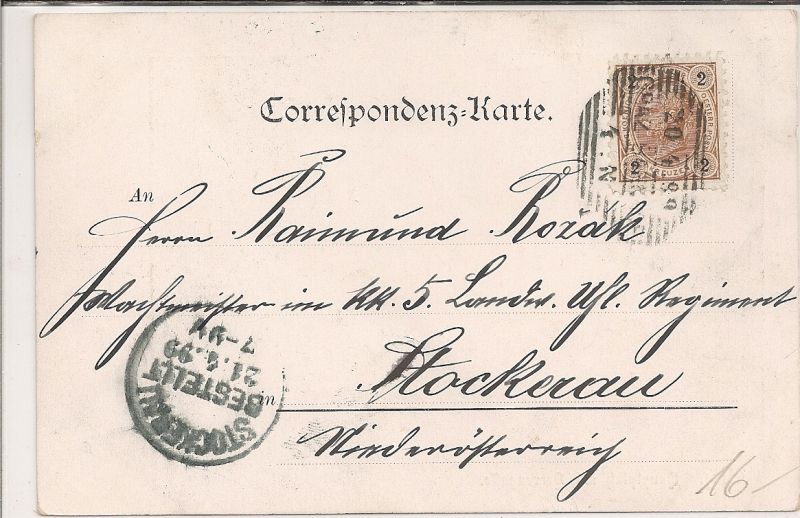 Correspondenz-Karte.
2 2
2 2
An
Herrn Raimund Rozak
Wachtmeister im kk. 5. Landw. Uhl. Regiment
in Stockerau
Niederösterreich
STOCKERAU
BESTELLT
21.4.99
7-9V
16-